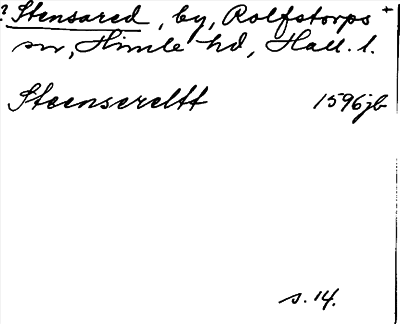 ? Stensared, by, Rolfstorps +
sn, Himle hd, Hall. l.
Steensereltt 1596 jb
s. 14.